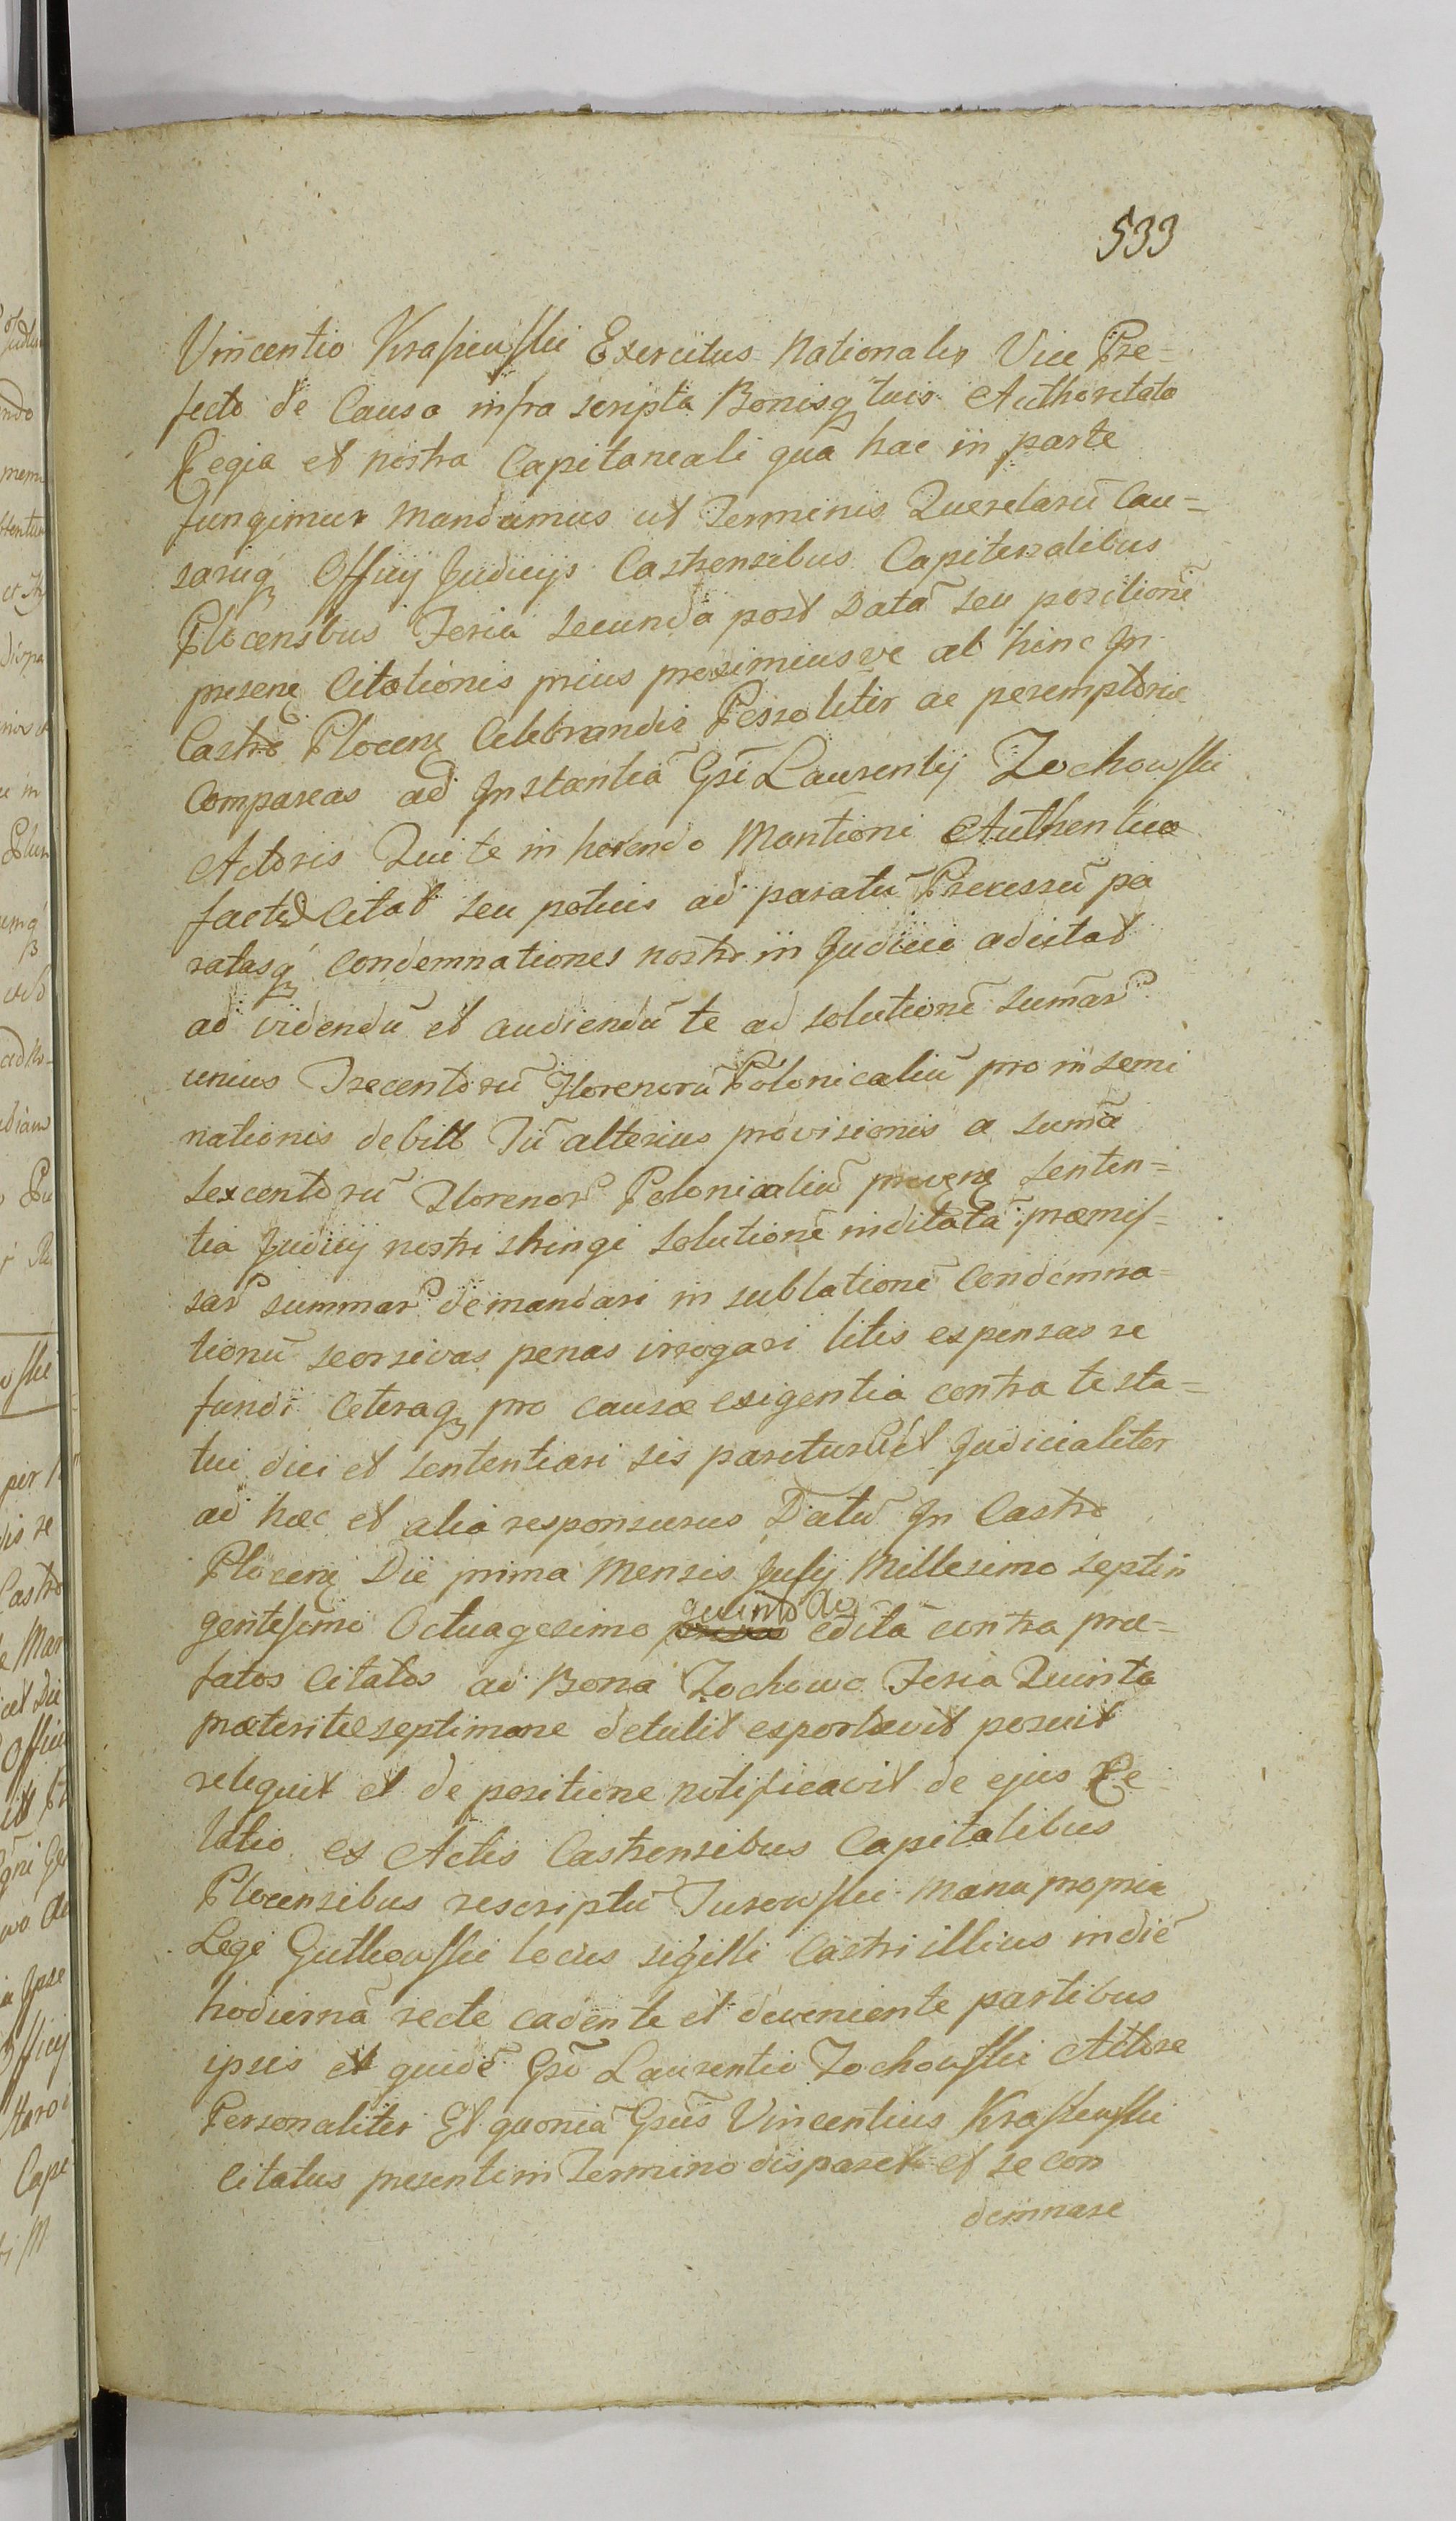 533
Vincentio Krasiewski Exercitus Nationalis Vice Pre=
fecto de Causa infra scripta Bonisq tuis Authoritate
Regia et nostra Capitaneali qua hac in parte
fungimur mandamus ut Terminis Querelarū Cau=
sarūq Officij Judicijs Castrensibus Capitenalibus
Plocensibus Feria secunda post Datā seu positionē
presenę Citationis prius proximiusve ab hinc In
Castro Plocenę Celebrandis Personaliter ac peremptorie
Compareas ad Instantiā Gsi Laurentij Zochowski
Actoris Qui te in herendo Montioni Authentice
factæ Citat seu potius ad paratū Processū pa
ratasq Condemnationes nostro in Judicio adcitat
ad videndū et audiendū te ad solutionē sumar
unius Trecentorū Florenorū Polonicaliū pro in semi
nationis debitt Tū alterius provisionis a sumā
sexcentorū Florenor Polonicaliū provenę senten=
tia Judicij nostri stringi solutionē inditatā præmis=
sar summar demandari in sublationē Condemna=
tionū seorsivas penas irrogari litis expensas re
fundi Ceteraq pro causæ exigentia contra te sta=
tui dici et sententiari sis pariturus et Judicialiter
ad hæc et alia responsurus Datū In Castro
Plocenę Die prima Mensis Julij Millesimo Septin
gentesimo Octuagesimo quinto edita contra præ=
fatos Citatos ad Bona Zochowo Feria Quinta
præteritæ septimanæ detulit exportavit posuit
reliquit et de positione notificavit de ejus Re
latio ex Actis Castrensibus Capitalibus
Plocensibus rescriptū Jurowski manu propria
Legi Gutkowski locus sigilli Castri illius in diē
hodiernā recte cadente et deveniente partibus
ipsis et quidē Gso Laurentio Zochowski Actore
Personaliter Et quoniā Gsus Vincentius Krasiewski
Citatus presenti in Termino disparet et se con
demnare